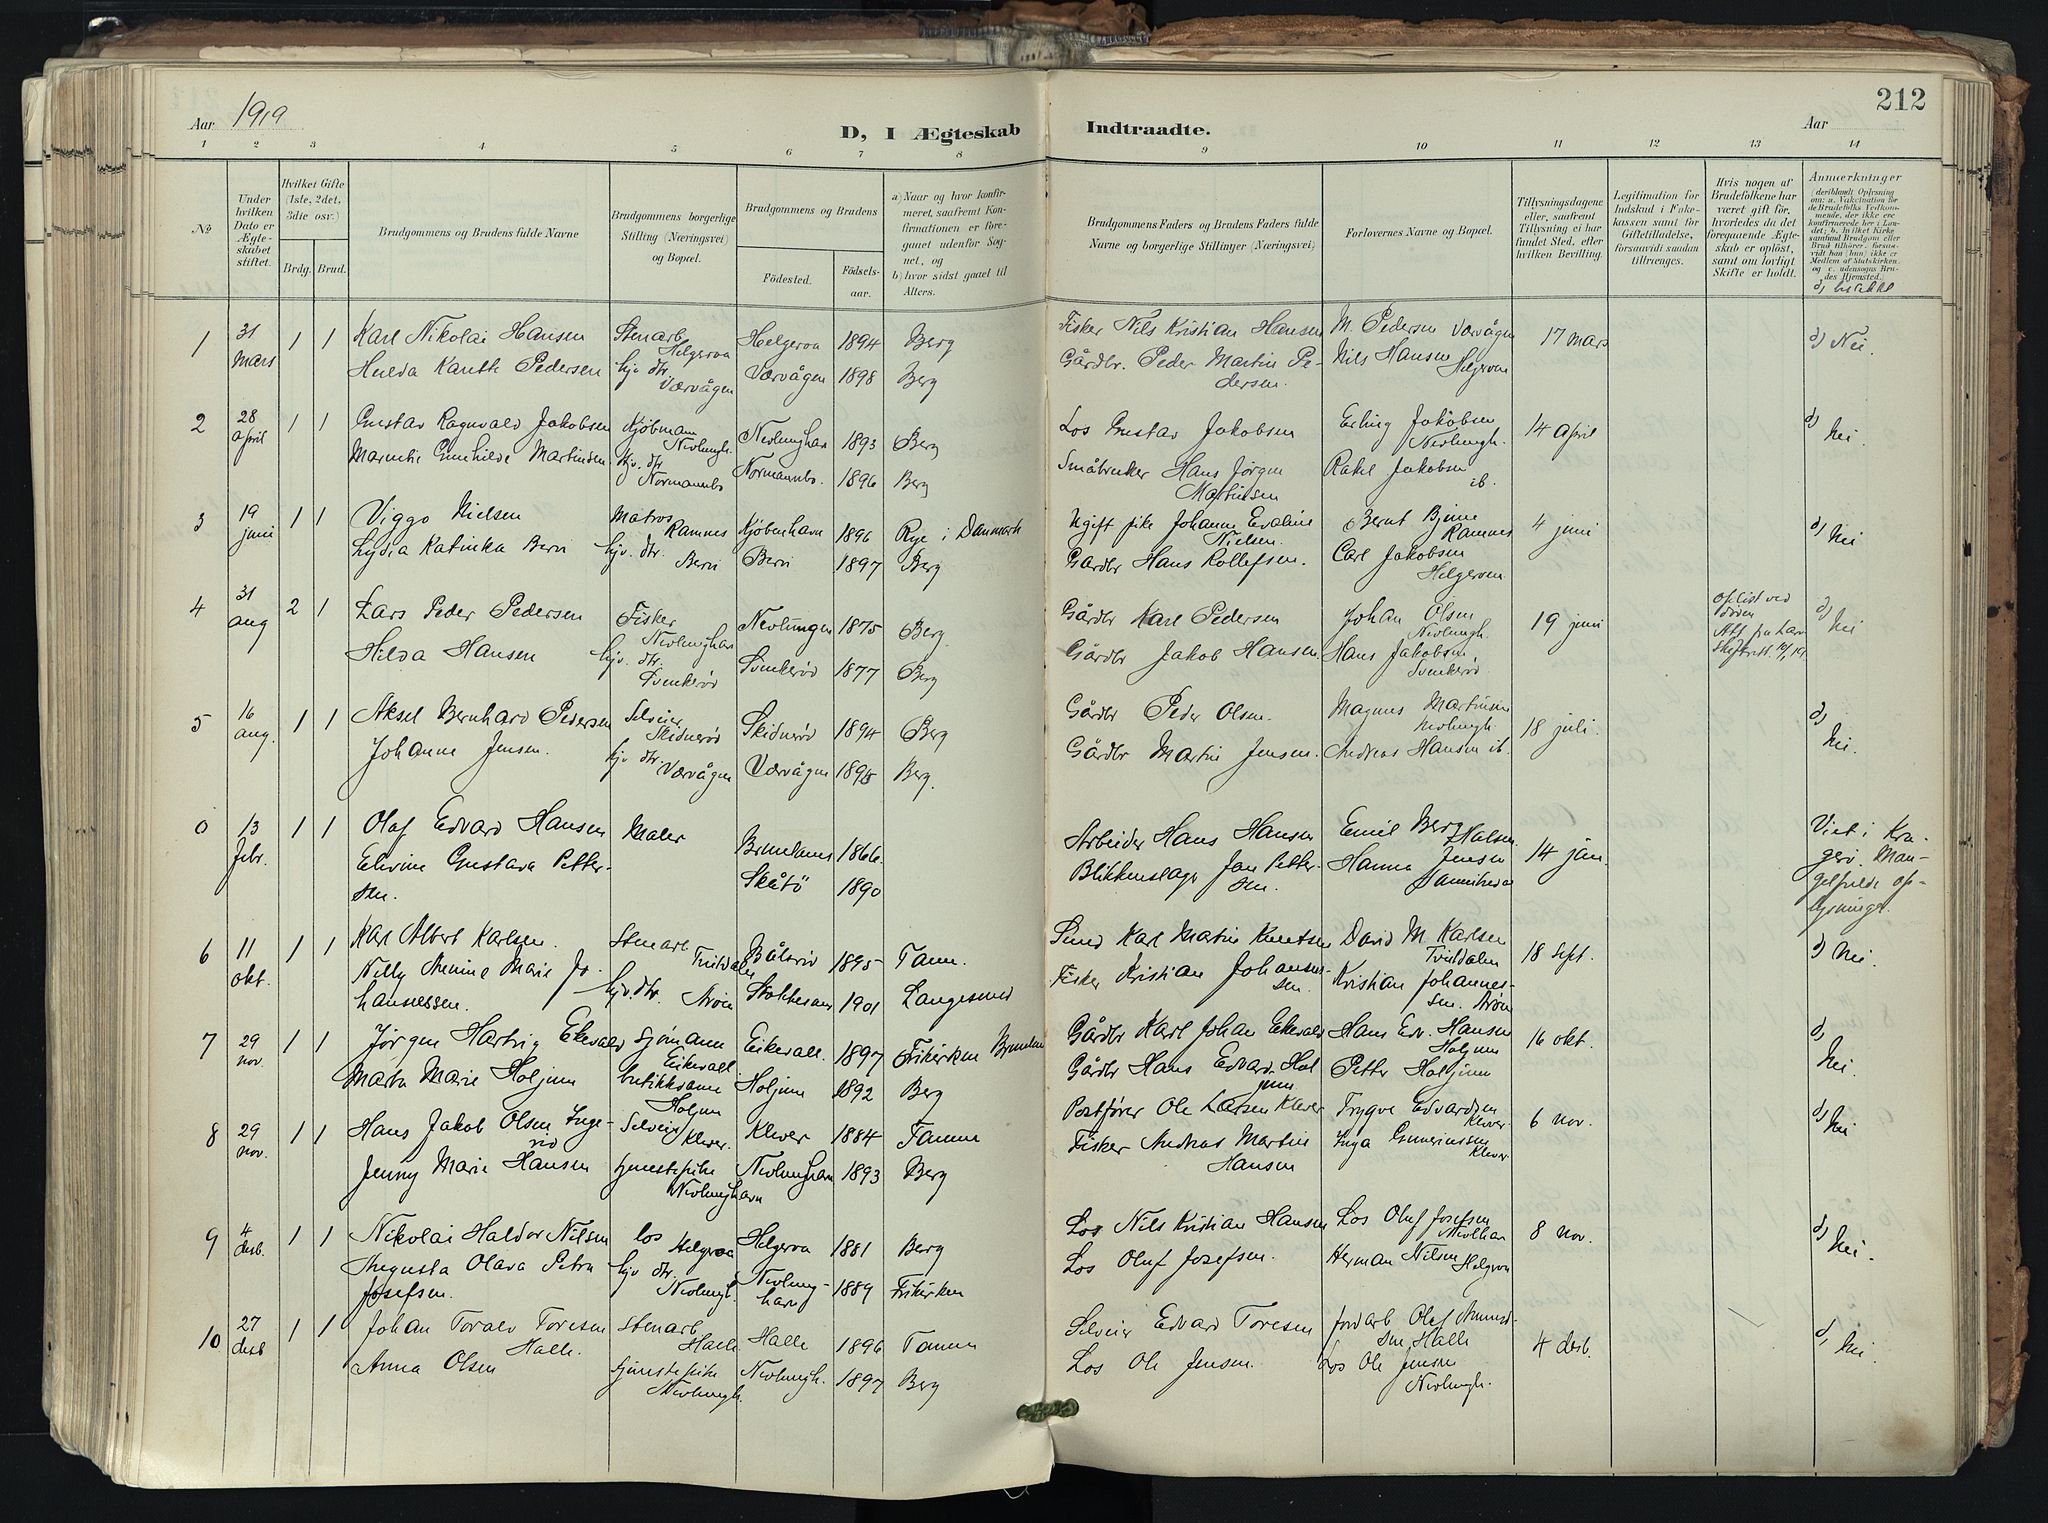 212
Aar 1919
D, I Ægteskab Indtraadte.
Aar
1 2 3 4 5 6 7 8 9 10 11 12 13 14
No
Under hvilken Dato er Ægteskabet stiftet.
Hvilket Gifte (1ste, 2det, 3die osv.)
Brdg. Brud.
Brudgommens og Brudens fulde Navne
Brudgommens borgerlige Stilling (Næringsvei) og Bopæl.
Brudgommens og Brudens
Födested.
Födsels-aar.
a) Naar og hvor konfirmeret, saafremt Konfirmationen er foregaaet udenfor Sognet, og
b) hvor sidst gaaet til Alters.
Brudgommens Faders og Brudens Faders fulde Navne og borgerlige Stillinger (Næringsvei)
Forlovernes Navne og Bopæl.
Tillysningsdagene eller, saafremt Tillysning ei har fundet Sted, efter hvilken Bevilling.
Legitimation for Indskud i Enkekassen samt for Giftetilladelse, forsaavidt saadan tiltrænges.
Hvis nogen af Brudefolkene har været gift før, hvorledes da det foregaaende Ægteskab er opløst, samt om lovligt Skifte er holdt.
Anmærkninger
(deriblandt Oplysning om: a. Vakcination for de Brudefolks Vedkommende, der ikke ere konfirmerede her i Landet; b. hvilket Kirkesamfund Brudgom eller Brud tilhører, forsaavidt han (hun) ikke er Medlem af Statskirken, og c. udensogns Brudes Hjemsted.)
1 31 mars 1 1 Karl Nikolai Hansen Stenarb Helgeroa Helgeroa 1894 Berg Fisker Nils Kristian Hansen M. Pedersen Værvågen 17 mars d) Nei.
Hulda Kanth Pedersen hjv. dtr. Værvågen Værvågen 1898 Berg Gårdbr. Peder Martin Pedersen. Nils Hansen Helgeroa
2 28 april 1 1 Gustav Ragnvald Jakobsen Kjøbmann Nevlungh. Nevlunghavn 1893 Berg Los Gustav Jakobsen Erling Jakobsen Nevlungh. 14 april d) Nei
Marntie Gunhilde Martinsen hjv. dtr. Normannbo Normannbo. 1896 Berg Småbruker Hans Jørgen Martinsen Rakel Jakobsen ib.
3 19 juni 1 1 Viggo Nielsen Matros Ramnes Kjøbenhavn 1896 Rye i Danmark Ugift pike Johanne Evaline Nielsen. Bernt Bjune Ramnes 4 juni d) Nei
Lydia Katinka Bervi hjv. dtr. Bervi Bervi 1897 Berg Gårdbr Hans Rollefsen. Carl Jakobsen Helgeroa
4 31 aug 2 1 Lars Peder Pedersen Fisker Nevlunghavn Nevlungen 1875 Berg Gårdbr Karl Pedersen Johan Olsen Nevlungh. 19 juni opløst ved døden d) Nei
Hilda Hansen hjv. dtr. Svinkerød Svinkerød 1877 Berg Gårdbr Jakob Hansen. Hans Jakobsen Svinkerød
5 16 aug. 1 1 Aksel Bernhard Pedersen Selveier Skidnerød Skidnerød 1894 Berg Gårdbr Peder Olsen. Magnus Martinsen Nevlungh 18 juli. d) Nei.
Johanne Jensen. hjv dtr. Værvågen Værvågen 1895 Berg. Gårdbr Martin Jensen. Andreas Hansen ib.
0 13 febr. 1 1 Olaf Edvard Hansen Maler Brunlanes 1866. Arbeider Hans Hansen Emil Berg 14 jan. Viet i Kragerø. Mangelfulde oplysninger.
Elvine Gustava Pettersen. Skåtø 1890 Blikkenslager Jan Pettersen. Hanna Jensen
6 11 okt. 1 1 Karl Albert Karlsen. Stenarb Tvidalen Bålsrød 1895 Tanu. Karl Martin Knutsen David M. Karlsen Tvidalen 18 sept. d) Nei.
Nelly Menine Marie Johannessen. hjv. dtr. Arøen 1901 Langesund Fisker Kristian Johansen. Kristian Johannessen. Arøen
7 29 nov. 1 1 Jørgen Hartvig Eikevald sjømann Eikevall Eikevall. 1897 Frikirken Brunlan Gårdbr Karl Johan Eikevald Hans Edv. Hansen Holjum 16 okt. d) Nei.
Marta Marie Holjum Holjum Holjum 1892 Berg Gårdbr Hans Edvard Holjum Petter Holjum
8 29 nov. 1 1 Hans Jakob Olsen Selveier Klever. Klever 1884 Tanum Postfører Ole Larsen Klever Trygve Edvardsen Klever 6 nov. d) Nei
Jenny Marie Hansen tjenestepike Nevlunghavn Nevlunghavn 1893 Berg Fisker Andreas Martin Hansen Inga Gunerinssen Klever
9 4 desb. 1 1 Nikolai Haldor Nilsen los Helgeroa Helgeroa 1881 Berg Los Nils Kristian Hansen Los Oluf Josefsen 8 nov. d) Nei.
Augusta Olava Petra Josefsen. hjv dtr. Nevlungh. Nevlunghavn 1889 Frikirken Los Oluf Josefsen. Herman Nilsen Helgeroa
10 27 desb 1 1 Johan Toralv Toresen Halle. Stenarb Halle Halle 1896 Tanum Selveier Edvard Toresen jordarb Olaf Amundsen Halle 4 desb. d) Nei.
Anna Olsen tjenestepike Nevlungh. Nevlungh. 1897 Berg Los Ole Jensen. Los Ole Jensen Nevlungh.